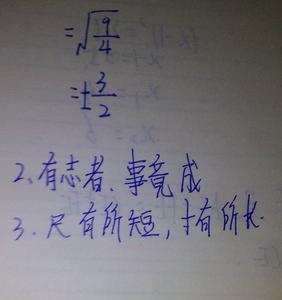 =√9/4
=±3/2
2、有志者、事竟成
3.尺有所短,寸有所长.